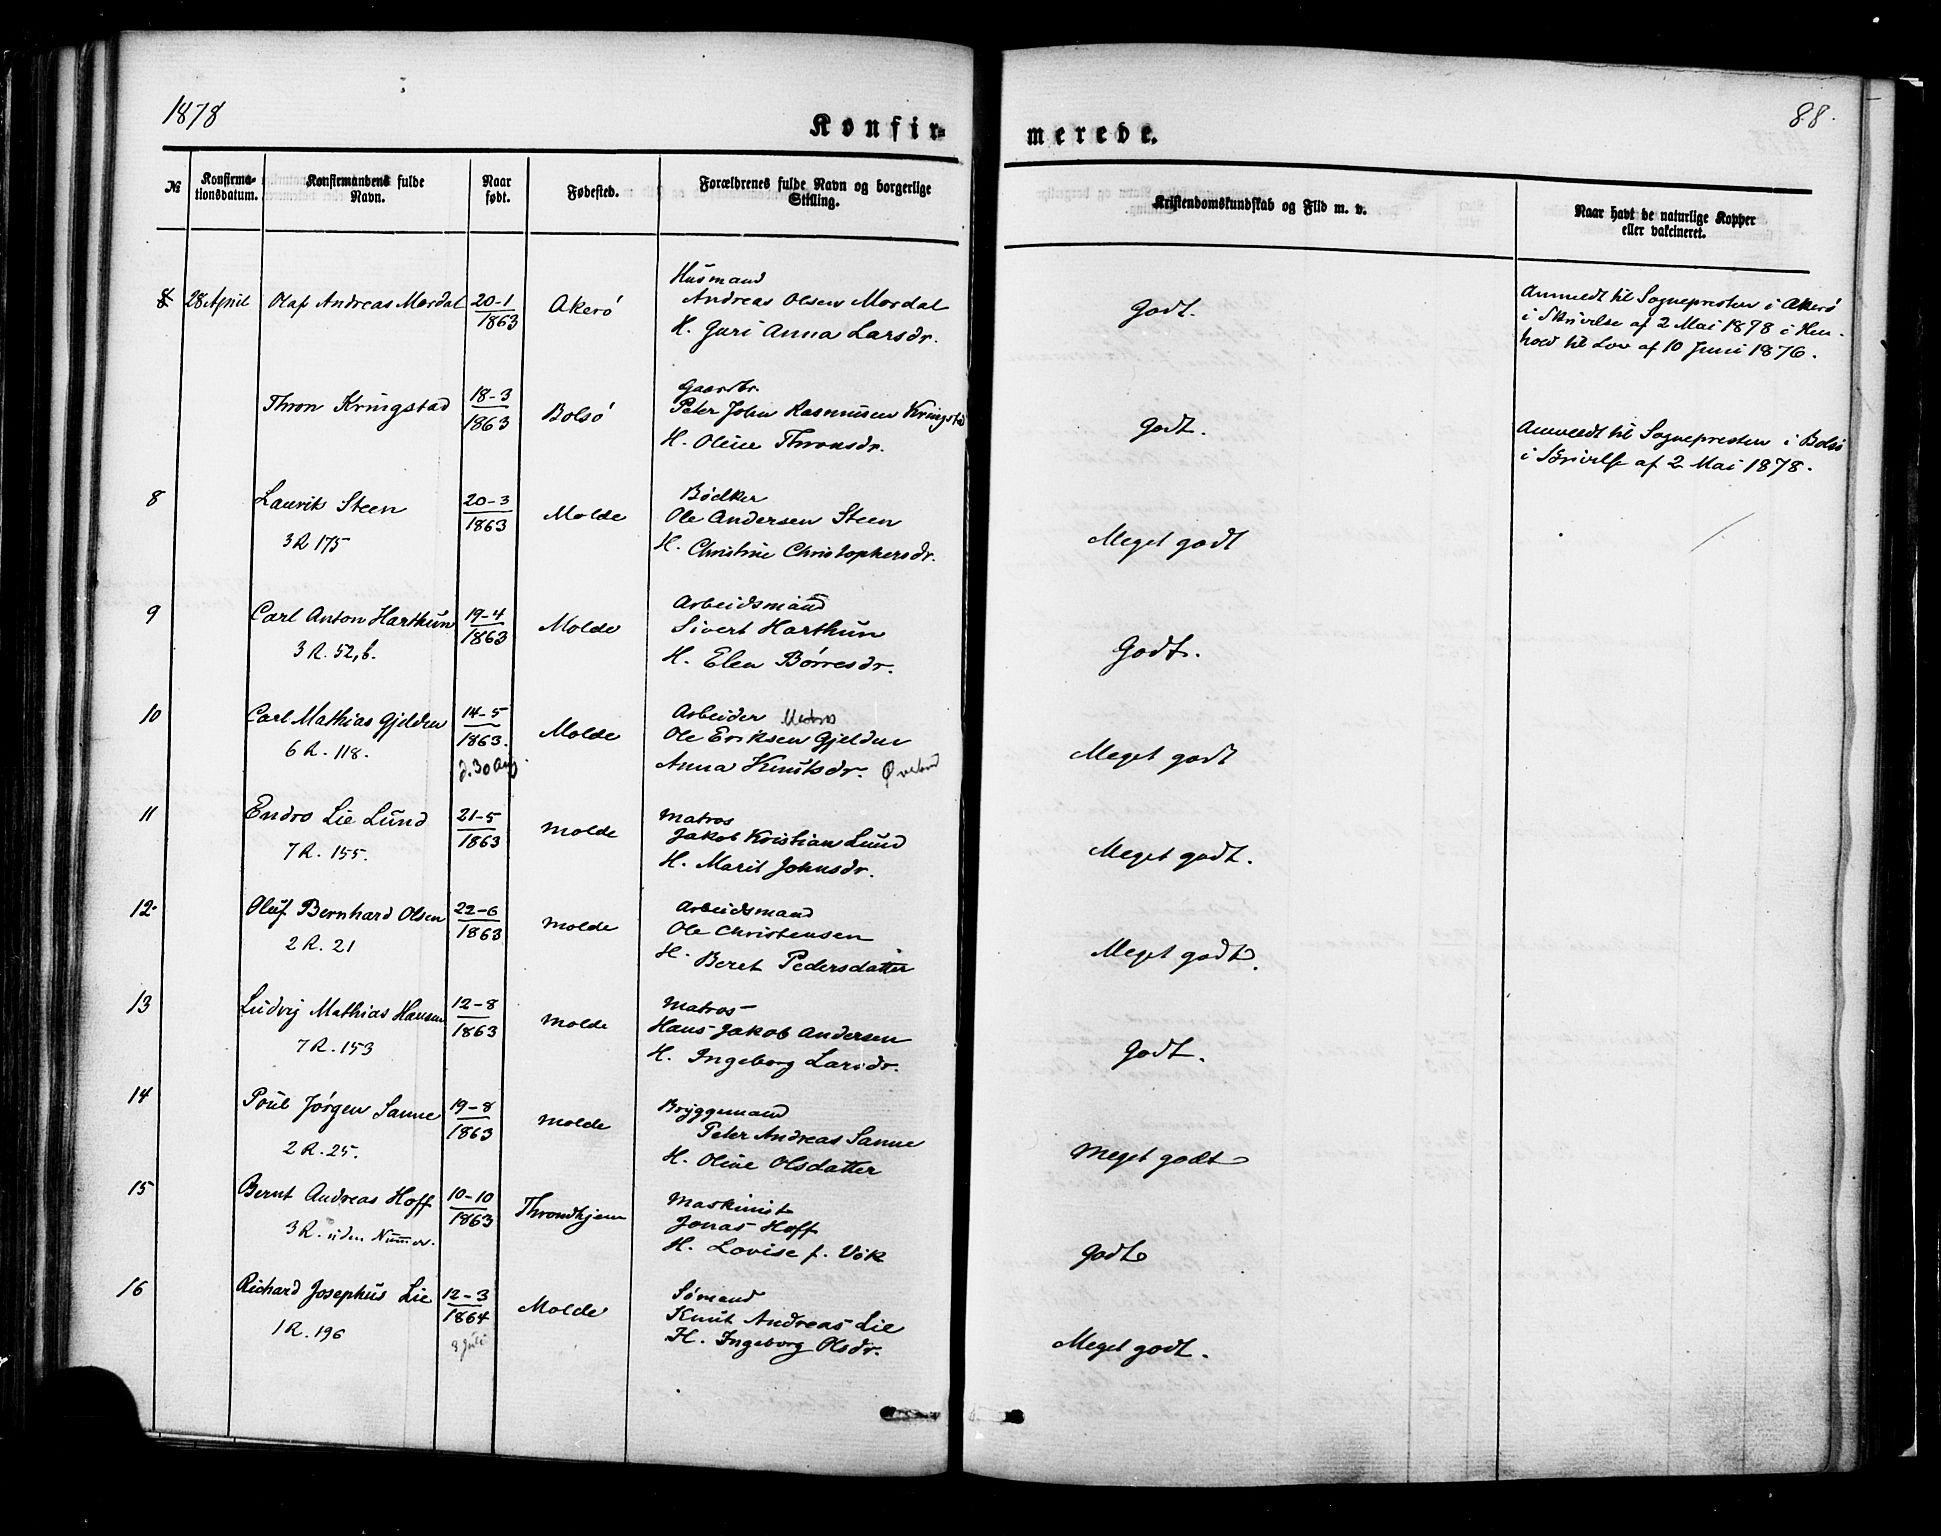 1878
88.
Konfir-
merede.
№
Konfirma-
tionsdatum.
Konfirmandens fulde
Navn.
Naar
født.
Fødested.
Forældrenes fulde Navn og borgerlige
Stilling.
Kristendomskundskab og Flid m. v.
Naar havt de naturlige Kopper
eller vakcineret.
8 28 April Olaf Andreas Mordal 20-1 1863 Akerö
Husmand
Andreas Olsen Mordal
H. Guri Anna Larsdr.
Godt.
Anmeldt til Sognepresten i Akerö
i Skrivelse af 2 Mai 1878 i Hen-
hold til Lov af 10 Juni 1876.
Thron Kringstad 18-3 1863 Bolsö
Gaardbr.
Peter John Rasmusen Kringstad
H. Oline Thronsdr.
Godt.
Anmeldt til Sognepresten i Bolsö
i Skrivelse af 2 Mai 1878.
8 Laurits Steen 20-3 1863 Molde
3 R 175
Bödker
Ole Andersen Steen
H. Christine Christophersdr.
Meget godt
9 Carl Anton Harthun 19-4 1863 Molde
3 R. 52, b.
Arbeidsmand
Sivert Harthun
H. Elen Børresdr.
Godt.
10 Carl Mathias Gjeldnes 14-5 1863. Molde
6 R. 118.
d. 30 Aug
Arbeider Matros
Ole Eriksen Gjeldnes
Anna Knutsdr.
Meget godt
11 Endre Lie Lund 21-5 1863 Molde
7 R. 155.
Matros
Jakob Kristian Lund
H. Marit Johnsdr.
Meget godt.
12. Oluf Bernhard Olsen 22-6 1863 Molde
2 R. 21
Arbeidsmand
Ole Christensen
H. Beret Pedersdatter
Meget godt.
13 Ludvig Mathias Hansen 12-8 1863 Molde
7 R. 153
Matros
Hans Jakob Andersen
H. Ingeborg Larsdr.
Godt.
14 Poul Jørgen Sanne 19-8 1863 Molde
2 R. 25.
Bryggemand
Peter Andreas Sanne
H. Oline Olsdatter
Meget godt
15 Bernt Andreas Hoff 10-10 1863 Throndhjem
3 R. uden Nummer.
Maskinist
Jonas Hoff
H. Lovise f. Vök
Godt
16 Richard Josephus Lie 12-3 1864 Molde
1 R. 196
8 Juli
Sømand
Knut Andreas Lie
H. Ingeborg Olsdr.
Meget godt.